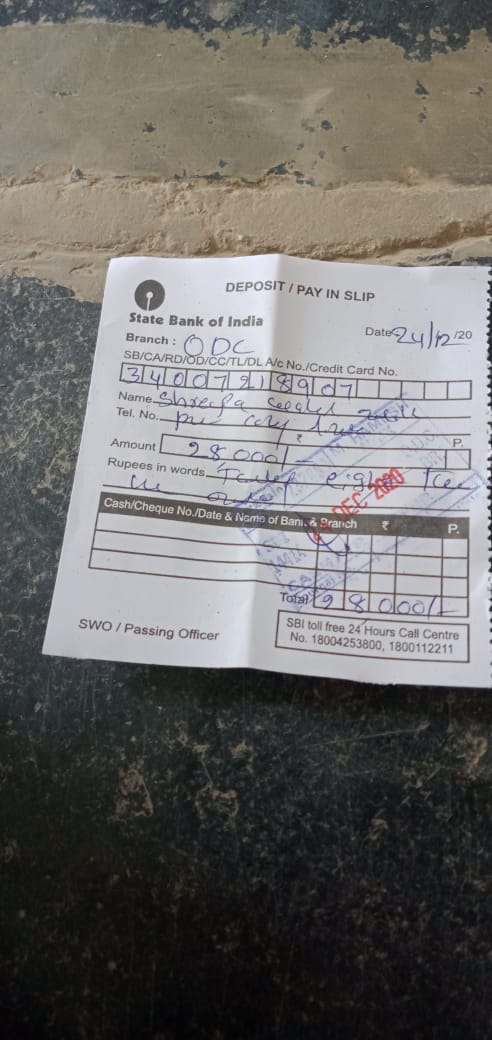 DEPOSIT / PAY IN SLIP
State Bank of India
Branch : ODC
Date 24/12/20
SB/CA/RD/OD/CC/TL/DL A/c No./Credit Card No.
34007218907
Name
Tel. No.
₹ P.
Amount 28000/-
Rupees in words
DEC 2020
Cash/Cheque No./Date & Name of Bank & Branch ₹ P.
Total 28000/-
SWO / Passing Officer
SBI toll free 24 Hours Call Centre
No. 18004253800, 1800112211